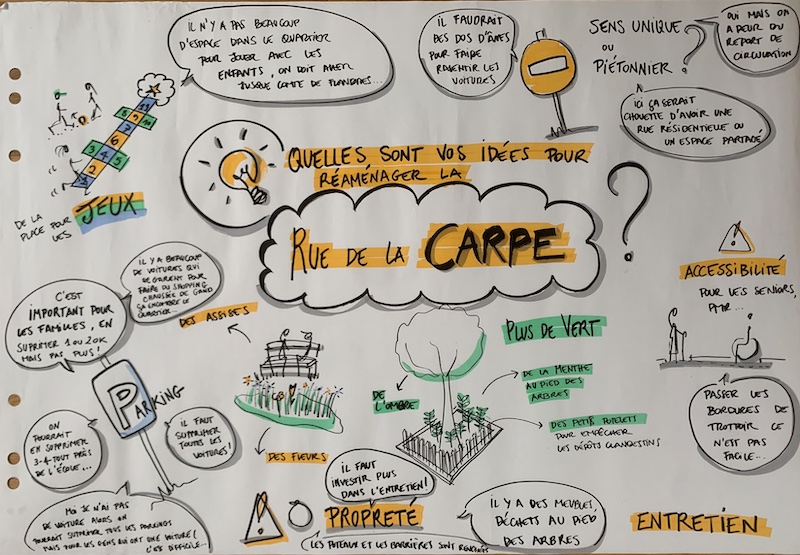 IL N'Y A PAS BEAUCOUP
D'ESPACE DANS LE QUARTIER
POUR JOUER AVEC LES
ENFANTS, ON DOIT ALLER
JUSQUE COMTE DE FLANDRES...
IL FAUDRAIT
DES DOS D'ÂNES
POUR FAIRE
RALENTIR LES
VOITURES
SENS UNIQUE
OU
PIÉTONNIER ?
OUI MAIS ON
A PEUR DU
REPORT DE
CIRCULATION
ICI ÇA SERAIT
CHOUETTE D'AVOIR UNE
RUE RÉSIDENTIELLE OU
UN ESPACE PARTAGÉ
DE LA
PLACE POUR
LES
JEUX
QUELLES SONT VOS IDÉES POUR
RÉAMÉNAGER LA
RUE DE LA CARPE
?
ACCESSIBILITÉ
POUR LES SENIORS,
PMR...
PASSER LES
BORDURES DE
TROTTOIR CE
N'EST PAS
FACILE...
IL Y A BEAUCOUP
DE VOITURES QUI
SE GARENT POUR
FAIRE DU SHOPPING
CHAUSSÉE DE GAND
ÇA ENCOMBRE LE
QUARTIER...
C'EST
IMPORTANT POUR
LES FAMILLES, EN
SUPRIMER 1 OU 2 OK
MAIS PAS PLUS !
PARKING
ON
POURRAIT
EN SUPPRIMER
3-4 TOUT PRÈS
DE L'ÉCOLE...
IL FAUT
SUPPRIMER
TOUTES LES
VOITURES !
MOI JE N'AI PAS
DE VOITURE ALORS ON
POURRAIT SUPPRIMER TOUS LES PARKINGS
MAIS POUR LES GENS QUI ONT UNE VOITURE
C'EST DIFFICILE...
DES ASSISES
DES FLEURS
PLUS DE VERT
DE
L'OMBRE
DE LA MENTHE
AU PIED DES
ARBRES
DES PETITS POTELETS
POUR EMPÊCHER
LES DÉPÔTS CLANDESTINS
IL FAUT
INVESTIR PLUS
DANS L'ENTRETIEN !
PROPRETÉ
LES POTEAUX ET LES BARRIÈRES SONT
IL Y A DES MEUBLES,
DÉCHETS AU PIED
DES ARBRES
ENTRETIEN